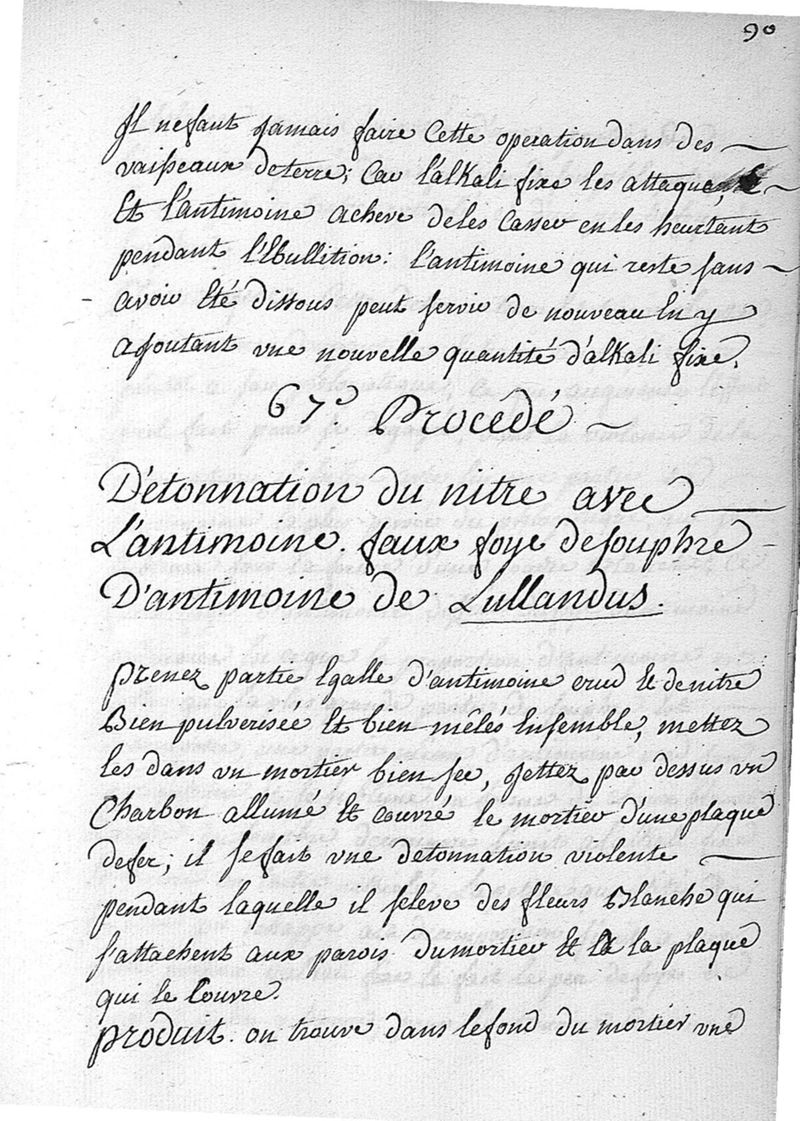 90
Il ne faut jamais faire Cette operation dans des
vaisseaux de terre; Car l'alkali fixe les attaque,
Et l'antimoine acheve de les Casser en les heurtant
pendant l'Ebullition: l'antimoine qui reste sans
avoir Eté dissous peut servir de nouveau En y
ajoutant vne nouvelle quantité d'alkali fixe.
67.e Procedé
Détonnation du nitre avec
L'antimoine. faux foye de souphre
D'antimoine de Lullandus.
prenez partie Egalle d'antimoine crud Et de nitre
Bien pulverisée Et bien mêlés Ensemble, mettez
les dans vn mortier bien sec, jettez par dessus vn
Charbon allumé Et couvré le mortier d'une plaque
de fer; il se fait vne detonnation violente
pendant laquelle il s'eleve des fleurs Blanche qui
s'attachent aux parois du mortier Et a la plaque
qui le Couvre.
produit. on trouve dans le fond du mortier vne